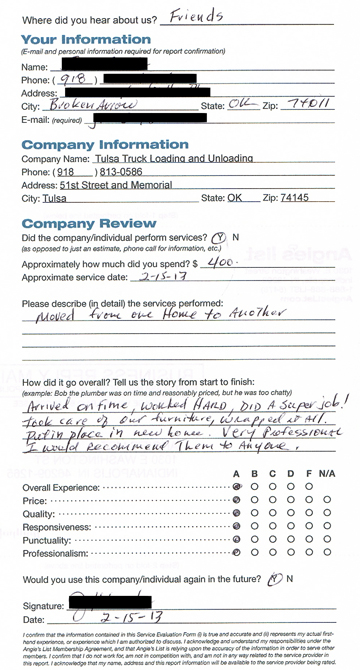 Where did you hear about us? Friends
Your Information
(E-mail and personal information required for report confirmation)
Name:
Phone: (918)
Address:
City: Broken Arrow State: OK Zip: 74011
E-mail: (required)
Company Information
Company Name: Tulsa Truck Loading and Unloading
Phone: (918 ) 813-0586
Address: 51st Street and Memorial
City: Tulsa State: OK Zip: 74145
Company Review
Did the company/individual perform services? Y N
(as opposed to just an estimate, phone call for information, etc.)
Approximately how much did you spend? $ 400-
Approximate service date: 2-15-13
Please describe (in detail) the services performed:
Moved from one Home to Another
How did it go overall? Tell us the story from start to finish:
(example: Bob the plumber was on time and reasonably priced, but he was too chatty)
Arrived on time, worked HARD, DID A Super job!
Took care of our furniture, wrapped it All.
Put in place in new home. Very Professional
I would Recommend Them to Anyone.
A B C D F N/A
Overall Experience:
Price:
Quality:
Responsiveness:
Punctuality:
Professionalism:
Would you use this company/individual again in the future? Y N
Signature:
Date: 2-15-13
I confirm that the information contained in this Service Evaluation Form (i) is true and accurate and (ii) represents my actual first-
hand experience, or experience which I am authorized to discuss. I acknowledge my rights and responsibilities under the
Angie's List Membership Agreement, and that Angie's List is relying upon the accuracy of the information in order to serve other
members. I confirm that I do not work for, am not in competition with, and am not in any way related to the service provider in
this report. I acknowledge that my name, address and this report information will be available to the service provider being rated.